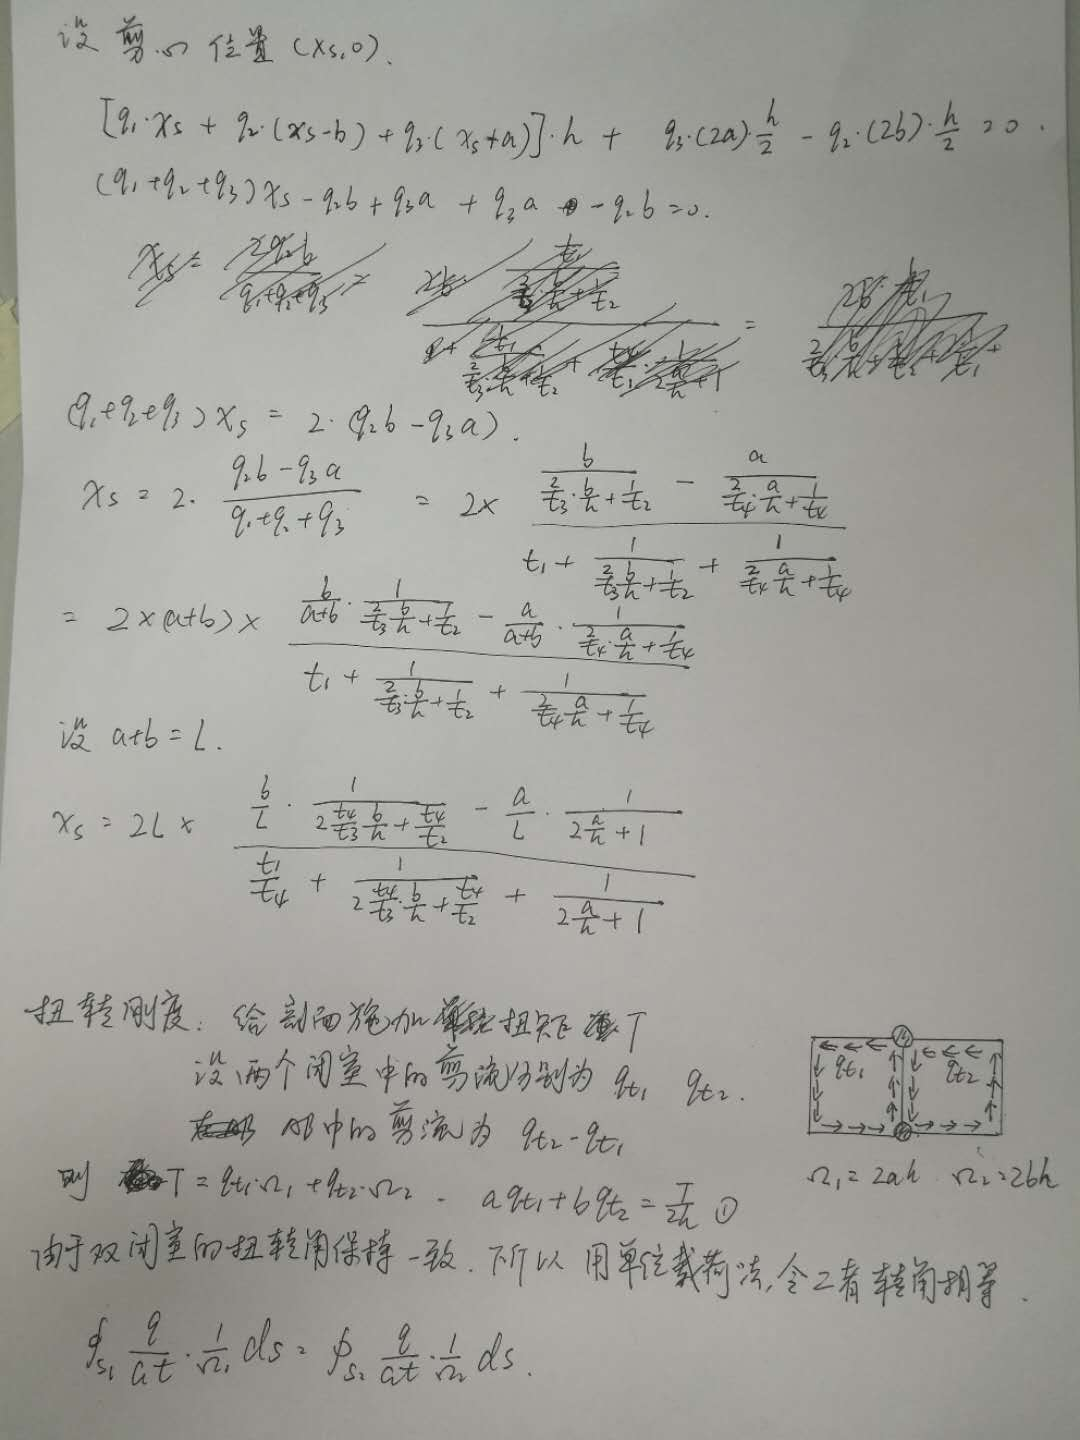 设剪心位置(xs,0).
[q₁·xs + q₂·(xs-b) + q₃·(xs+a)]·h + q₃·(2a)·h/2 - q₂·(2b)·h/2 = 0.
(q₁+q₂+q₃)xs - q₂b + q₃a + q₃a - q₂b = 0.
(q₁+q₂+q₃)xs = 2·(q₂b - q₃a).
xs = 2·(q₂b - q₃a)/(q₁+q₂+q₃) = 2× [b/(2/t₃·b/h + 1/t₂) - a/(2/t₄·a/h + 1/t₄)] / [t₁ + 1/(2/t₃·b/h + 1/t₂) + 1/(2/t₄·a/h + 1/t₄)]
= 2×(a+b)× [b/(a+b)·1/(2/t₃·b/h + 1/t₂) - a/(a+b)·1/(2/t₄·a/h + 1/t₄)] / [t₁ + 1/(2/t₃·b/h + 1/t₂) + 1/(2/t₄·a/h + 1/t₄)]
设 a+b = L.
xs = 2L× [b/L·1/(2 t₄/t₃·b/h + t₄/t₂) - a/L·1/(2 a/h + 1)] / [t₁/t₄ + 1/(2 t₄/t₃·b/h + t₄/t₂) + 1/(2 a/h + 1)]
扭转刚度: 给剖面施加扭矩 T
设两个闭室中的剪流分别为 qt₁ qt₂.
中的剪流为 qt₂-qt₁
则 T = qt₁·Ω₁ + qt₂·Ω₂. aqt₁ + bqt₂ = T/2h ①
由于双闭室的扭转角保持一致. 所以用单位载荷法,令二者转角相等.
∮s₁ q/Gt·1/Ω₁ ds = ∮s₂ q/Gt·1/Ω₂ ds.
qt₁ qt₂
Ω₁=2ah Ω₂=2bh